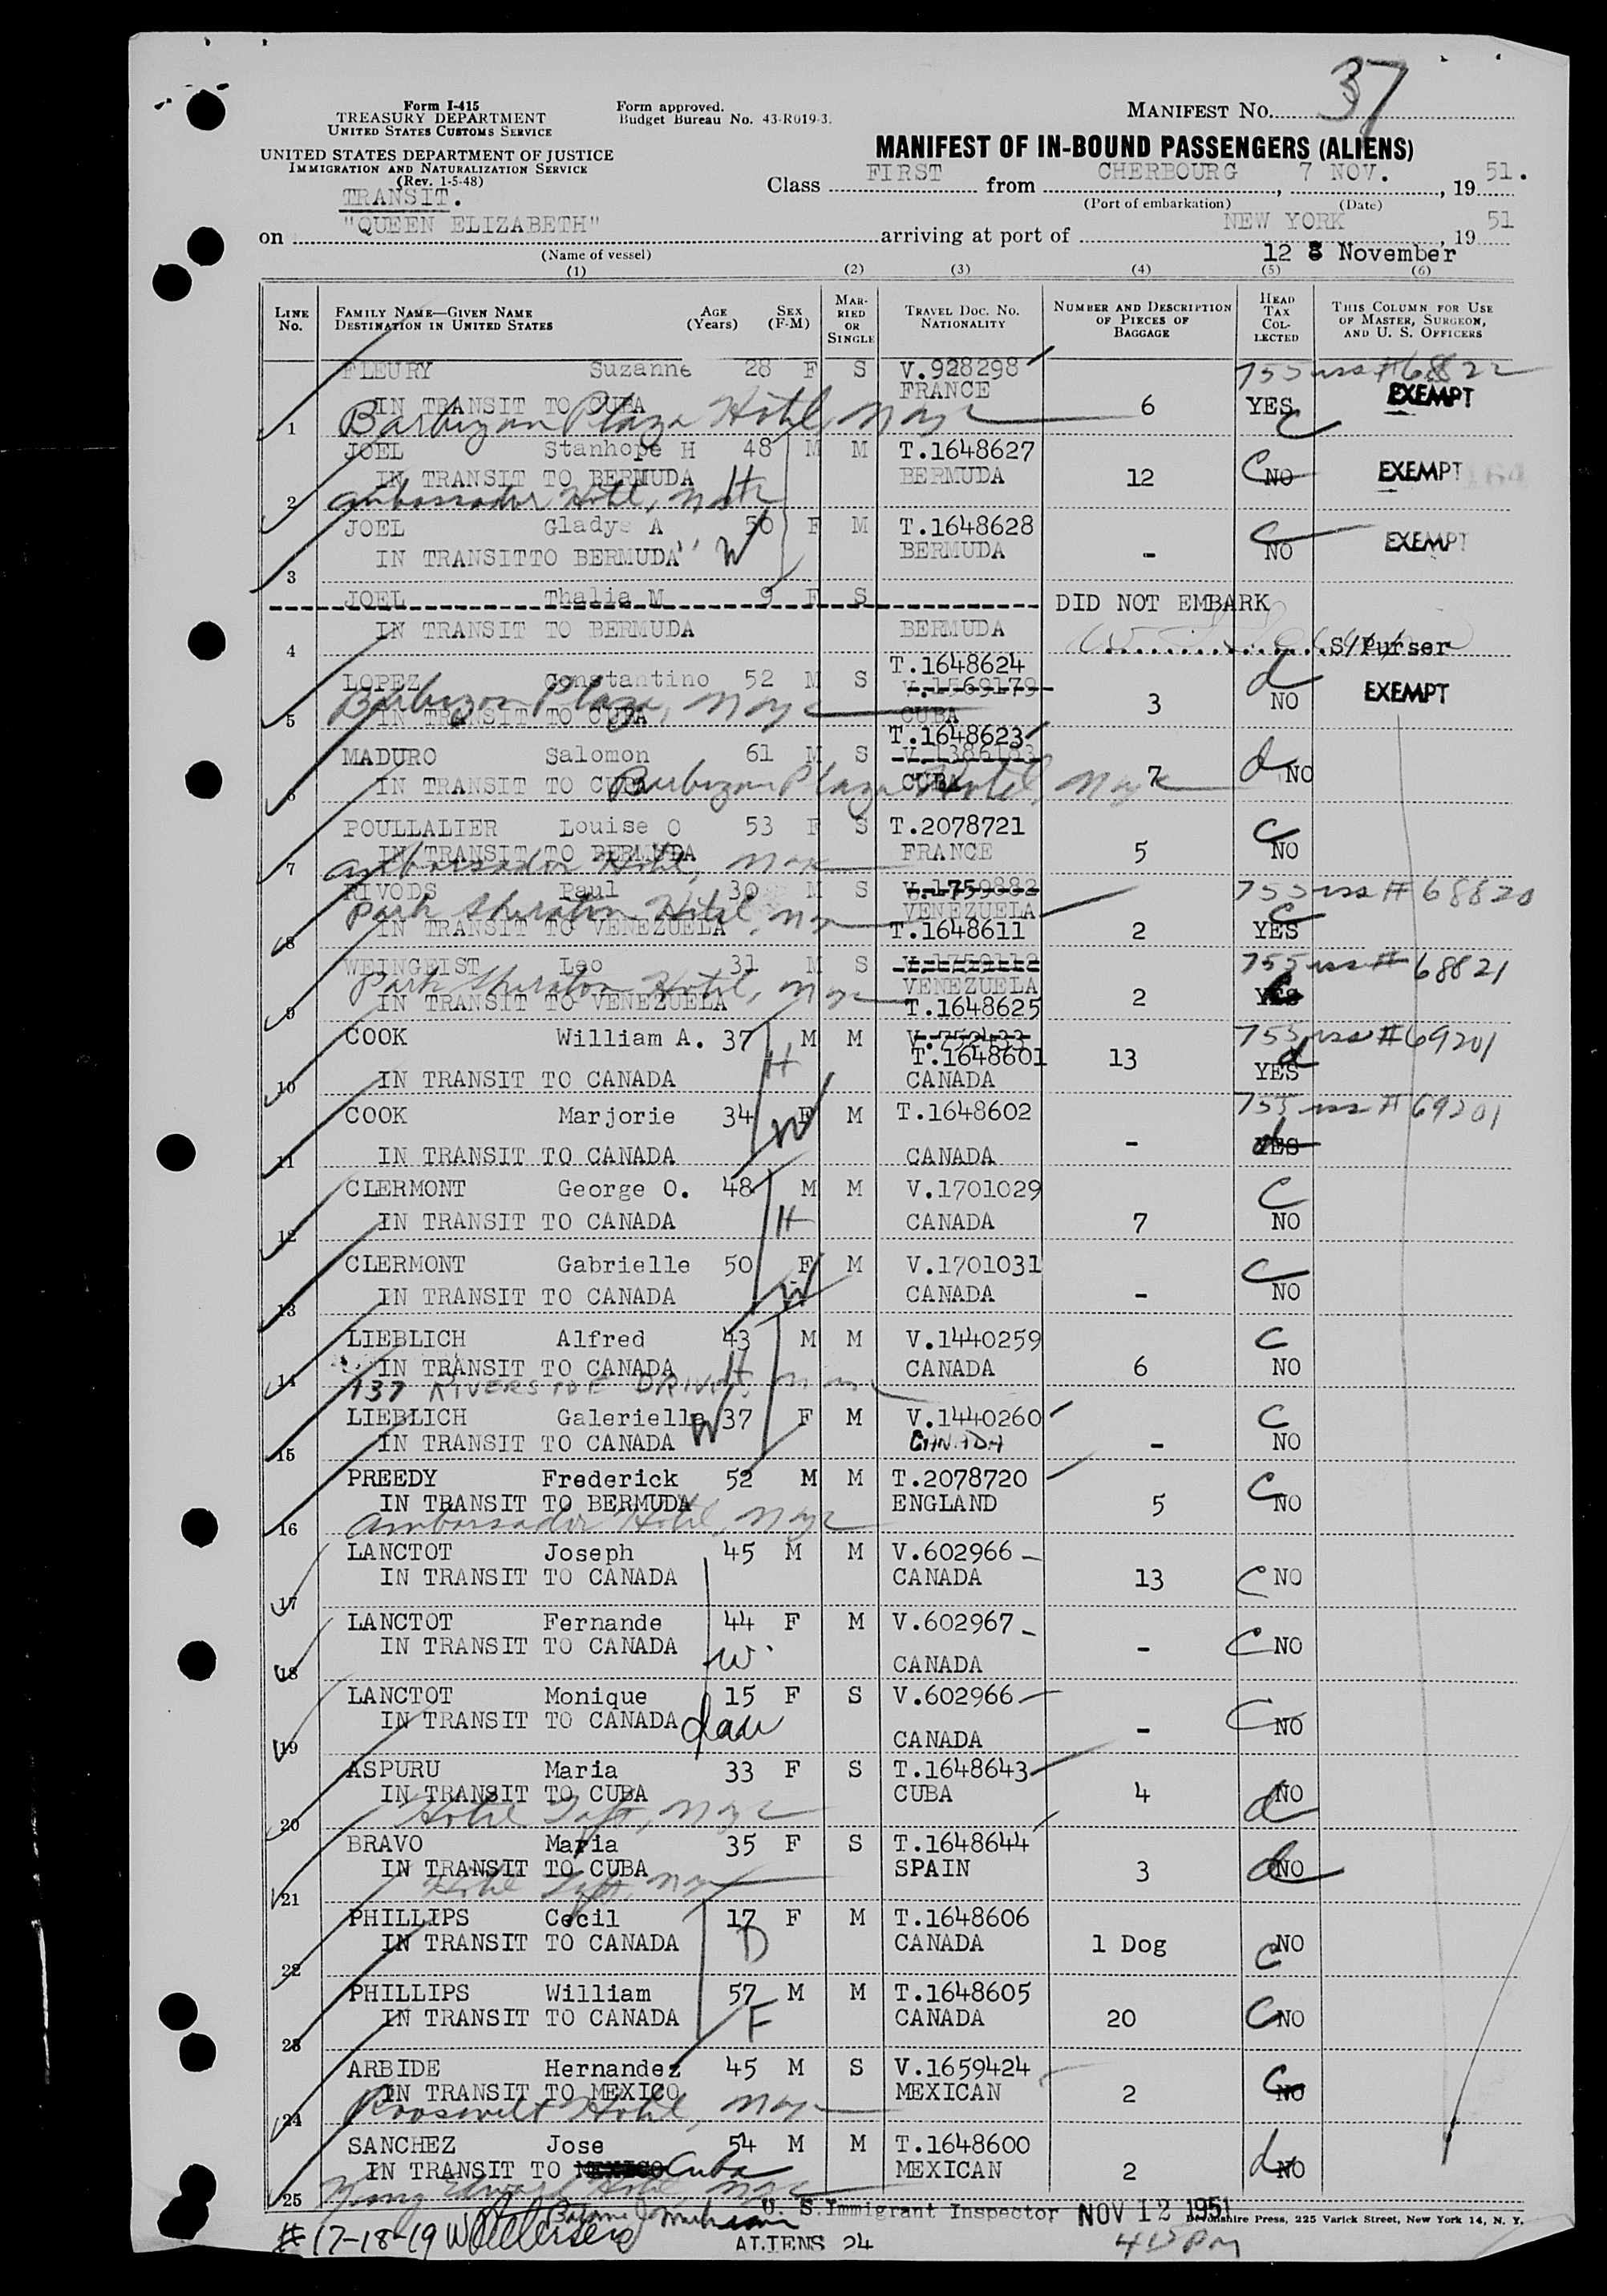 37
Form I-415
TREASURY DEPARTMENT
UNITED STATES CUSTOMS SERVICE
Form approved.
Budget Bureau No. 43-R019-3.
MANIFEST NO.
UNITED STATES DEPARTMENT OF JUSTICE
IMMIGRATION AND NATURALIZATION SERVICE
(Rev. 1-5-48)
MANIFEST OF IN-BOUND PASSENGERS (ALIENS)
TRANSIT.
Class FIRST from CHERBOURG, 7 NOV., 19 51.
(Port of embarkation) (Date)
on "QUEEN ELIZABETH" arriving at port of NEW YORK, 19 51
(Name of vessel)
12 8 November
(1) (2) (3) (4) (5) (6)
LINE No. FAMILY NAME—GIVEN NAME DESTINATION IN UNITED STATES AGE (Years) SEX (F-M) MARRIED OR SINGLE TRAVEL DOC. NO. NATIONALITY NUMBER AND DESCRIPTION OF PIECES OF BAGGAGE HEAD TAX COLLECTED THIS COLUMN FOR USE OF MASTER, SURGEON, AND U. S. OFFICERS
FLEURY Suzanne 28 F S V.928298 755 #68822
IN TRANSIT TO CUBA FRANCE 6 YES EXEMPT
1 Barbizon Plaza Hotel, NYC
JOEL Stanhope H 48 M M T.1648627
IN TRANSIT TO BERMUDA H BERMUDA 12 C NO EXEMPT
2 Ambassador Hotel,
JOEL Gladys A 50 F M T.1648628 C
IN TRANSITTO BERMUDA " W BERMUDA - NO EXEMPT
3
JOEL Thalia M 9 F S DID NOT EMBARK
IN TRANSIT TO BERMUDA BERMUDA
4 S/Purser
T.1648624
LOPEZ Constantino 52 M S V.1569179 d
Barbizon Plaza, NYC 3 NO EXEMPT
5 IN TRANSIT TO CUBA CUBA
T.1648623
MADURO Salomon 61 M S V.1386163
6 IN TRANSIT TO CUBA Barbizon Plaza Hotel, NYC CUBA 7 d NO
POULLALIER Louise O 53 F S T.2078721 C
IN TRANSIT TO BERMUDA FRANCE 5 NO
7 Ambassador Hotel,
RIVODS Paul 30 M S V.1759882 755 #68820
Park Sheraton Hotel, VENEZUELA C
8 IN TRANSIT TO VENEZUELA T.1648611 2 YES
WEINGEIST Leo 31 M S V.1759112 755 # 68821
Park Sheraton Hotel, VENEZUELA
9 IN TRANSIT TO VENEZUELA T.1648625 2 YES
COOK William A. 37 M M 755 #69201
H T.1648601 13 d
10 IN TRANSIT TO CANADA CANADA YES
COOK Marjorie 34 F M T.1648602 755 #69201
W - d YES
11 IN TRANSIT TO CANADA CANADA
CLERMONT George O. 48 M M V.1701029 C
IN TRANSIT TO CANADA H CANADA 7 NO
12
CLERMONT Gabrielle 50 F M V.1701031 C
IN TRANSIT TO CANADA W CANADA - NO
13
LIEBLICH Alfred 43 M M V.1440259 C
IN TRANSIT TO CANADA H CANADA 6 NO
14 137 RIVERSIDE DRIVE,
LIEBLICH Galeriella 37 F M V.1440260 C
IN TRANSIT TO CANADA W CANADA - NO
15
PREEDY Frederick 52 M M T.2078720 C
IN TRANSIT TO BERMUDA ENGLAND 5 NO
16 Ambassador Hotel, NYC
LANCTOT Joseph 45 M M V.602966
IN TRANSIT TO CANADA CANADA 13 C NO
17
LANCTOT Fernande 44 F M V.602967
IN TRANSIT TO CANADA W - C NO
18 CANADA
LANCTOT Monique 15 F S V.602966
IN TRANSIT TO CANADA dau - C NO
19 CANADA
ASPURU Maria 33 F S T.1648643
IN TRANSIT TO CUBA CUBA 4 NO d
20 Hotel Taft, NYC
BRAVO Maria 35 F S T.1648644
IN TRANSIT TO CUBA SPAIN 3 d NO
21 Hotel Taft, NYC
PHILLIPS Cecil 17 F M T.1648606
IN TRANSIT TO CANADA D CANADA 1 Dog C NO
22
PHILLIPS William 57 M M T.1648605
IN TRANSIT TO CANADA F CANADA 20 C NO
23
ARBIDE Hernandez 45 M S V.1659424
IN TRANSIT TO MEXICO MEXICAN 2 C NO
24 Roosevelt Hotel, NYC
SANCHEZ Jose 54 M M T.1648600
IN TRANSIT TO MEXICO Cuba MEXICAN 2 d NO
25 King Edward Hotel NYC
U. S. Immigrant Inspector NOV 12 1951 Devonshire Press, 225 Varick Street, New York 14, N. Y.
# 17-18-19 ALIENS 24 4 PM